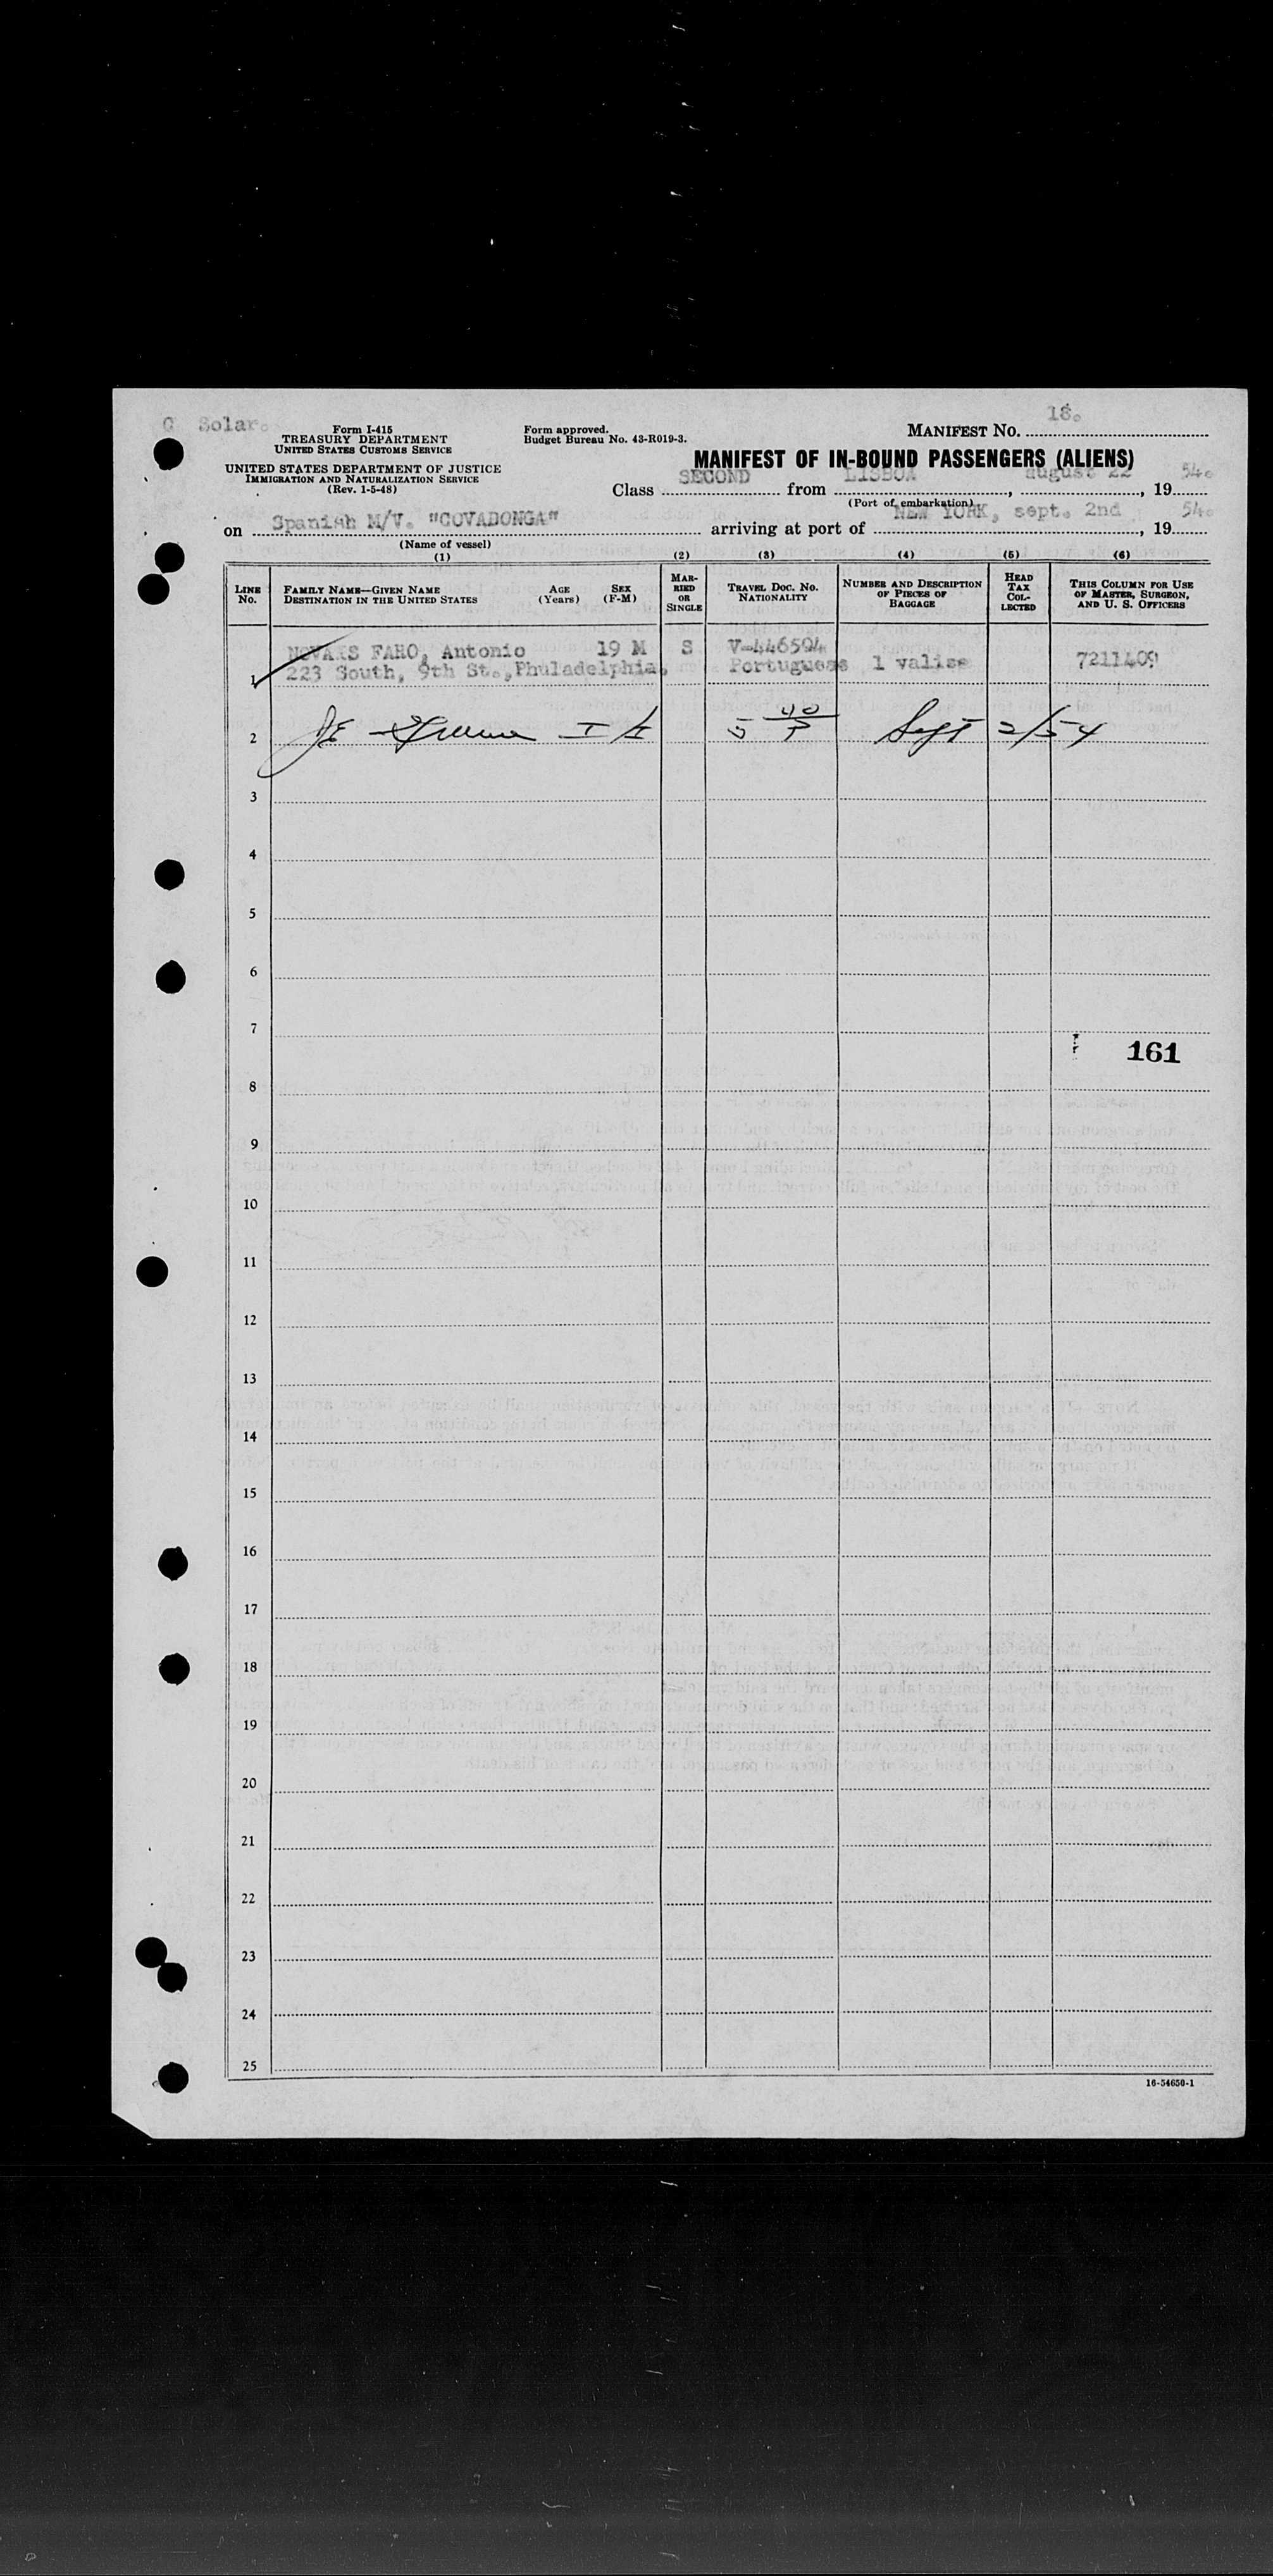 G Solar.
18.
Form I-415
TREASURY DEPARTMENT
UNITED STATES CUSTOMS SERVICE
Form approved.
Budget Bureau No. 43-R019-3.
MANIFEST No.
UNITED STATES DEPARTMENT OF JUSTICE
IMMIGRATION AND NATURALIZATION SERVICE
(Rev. 1-5-48)
MANIFEST OF IN-BOUND PASSENGERS (ALIENS)
Class SECOND from LISBOA, august 22, 1954.
(Port of embarkation)
on Spanish M/V. "COVADONGA" arriving at port of NEW YORK, sept. 2nd, 1954.
(Name of vessel)
(1) (2) (3) (4) (5) (6)
LINE No. FAMILY NAME—GIVEN NAME DESTINATION IN THE UNITED STATES AGE (Years) SEX (F-M) MARRIED OR SINGLE TRAVEL DOC. No. NATIONALITY NUMBER AND DESCRIPTION OF PIECES OF BAGGAGE HEAD TAX COLLECTED THIS COLUMN FOR USE OF MASTER, SURGEON, AND U. S. OFFICERS
NOVAIS FARO, Antonio 19 M S V-446594
1 223 South, 9th St., Phuladelphia. Portuguess 1 valise 7211409
2 Sept 2/54
3
4
5
6
7
161
8
9
10
11
12
13
14
15
16
17
18
19
20
21
22
23
24
25
16-54650-1